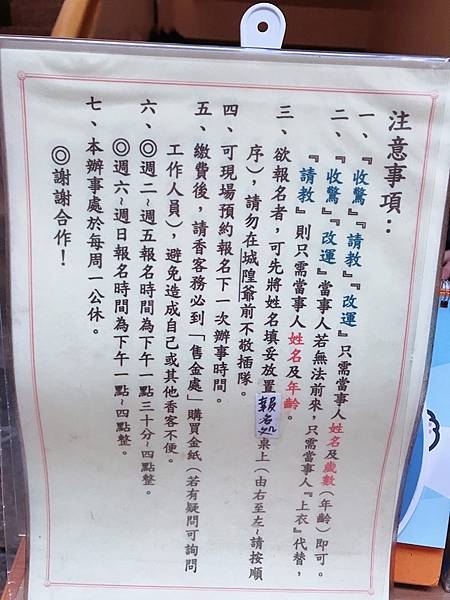 注意事項：
一、『收驚』『請教』『改運』只需當事人姓名及歲數（年齡）即可。
二、『收驚』『改運』當事人若無法前來，只需當事人『上衣』代替，
『請教』則只需當事人姓名及年齡。
三、欲報名者，可先將姓名填妥放置報名處桌上（由右至左~請按順
序），請勿在城隍爺前不敬插隊。
四、可現場預約報名下一次辦事時間。
五、繳費後，請香客務必到「售金處」購買金紙（若有疑問可詢問
工作人員），避免造成自己或其他香客不便。
六、◎週二~週五報名時間為下午一點三十分~四點整。
◎週六~週日報名時間為下午一點~四點整。
七、本辦事處於每周一公休。
◎謝謝合作！